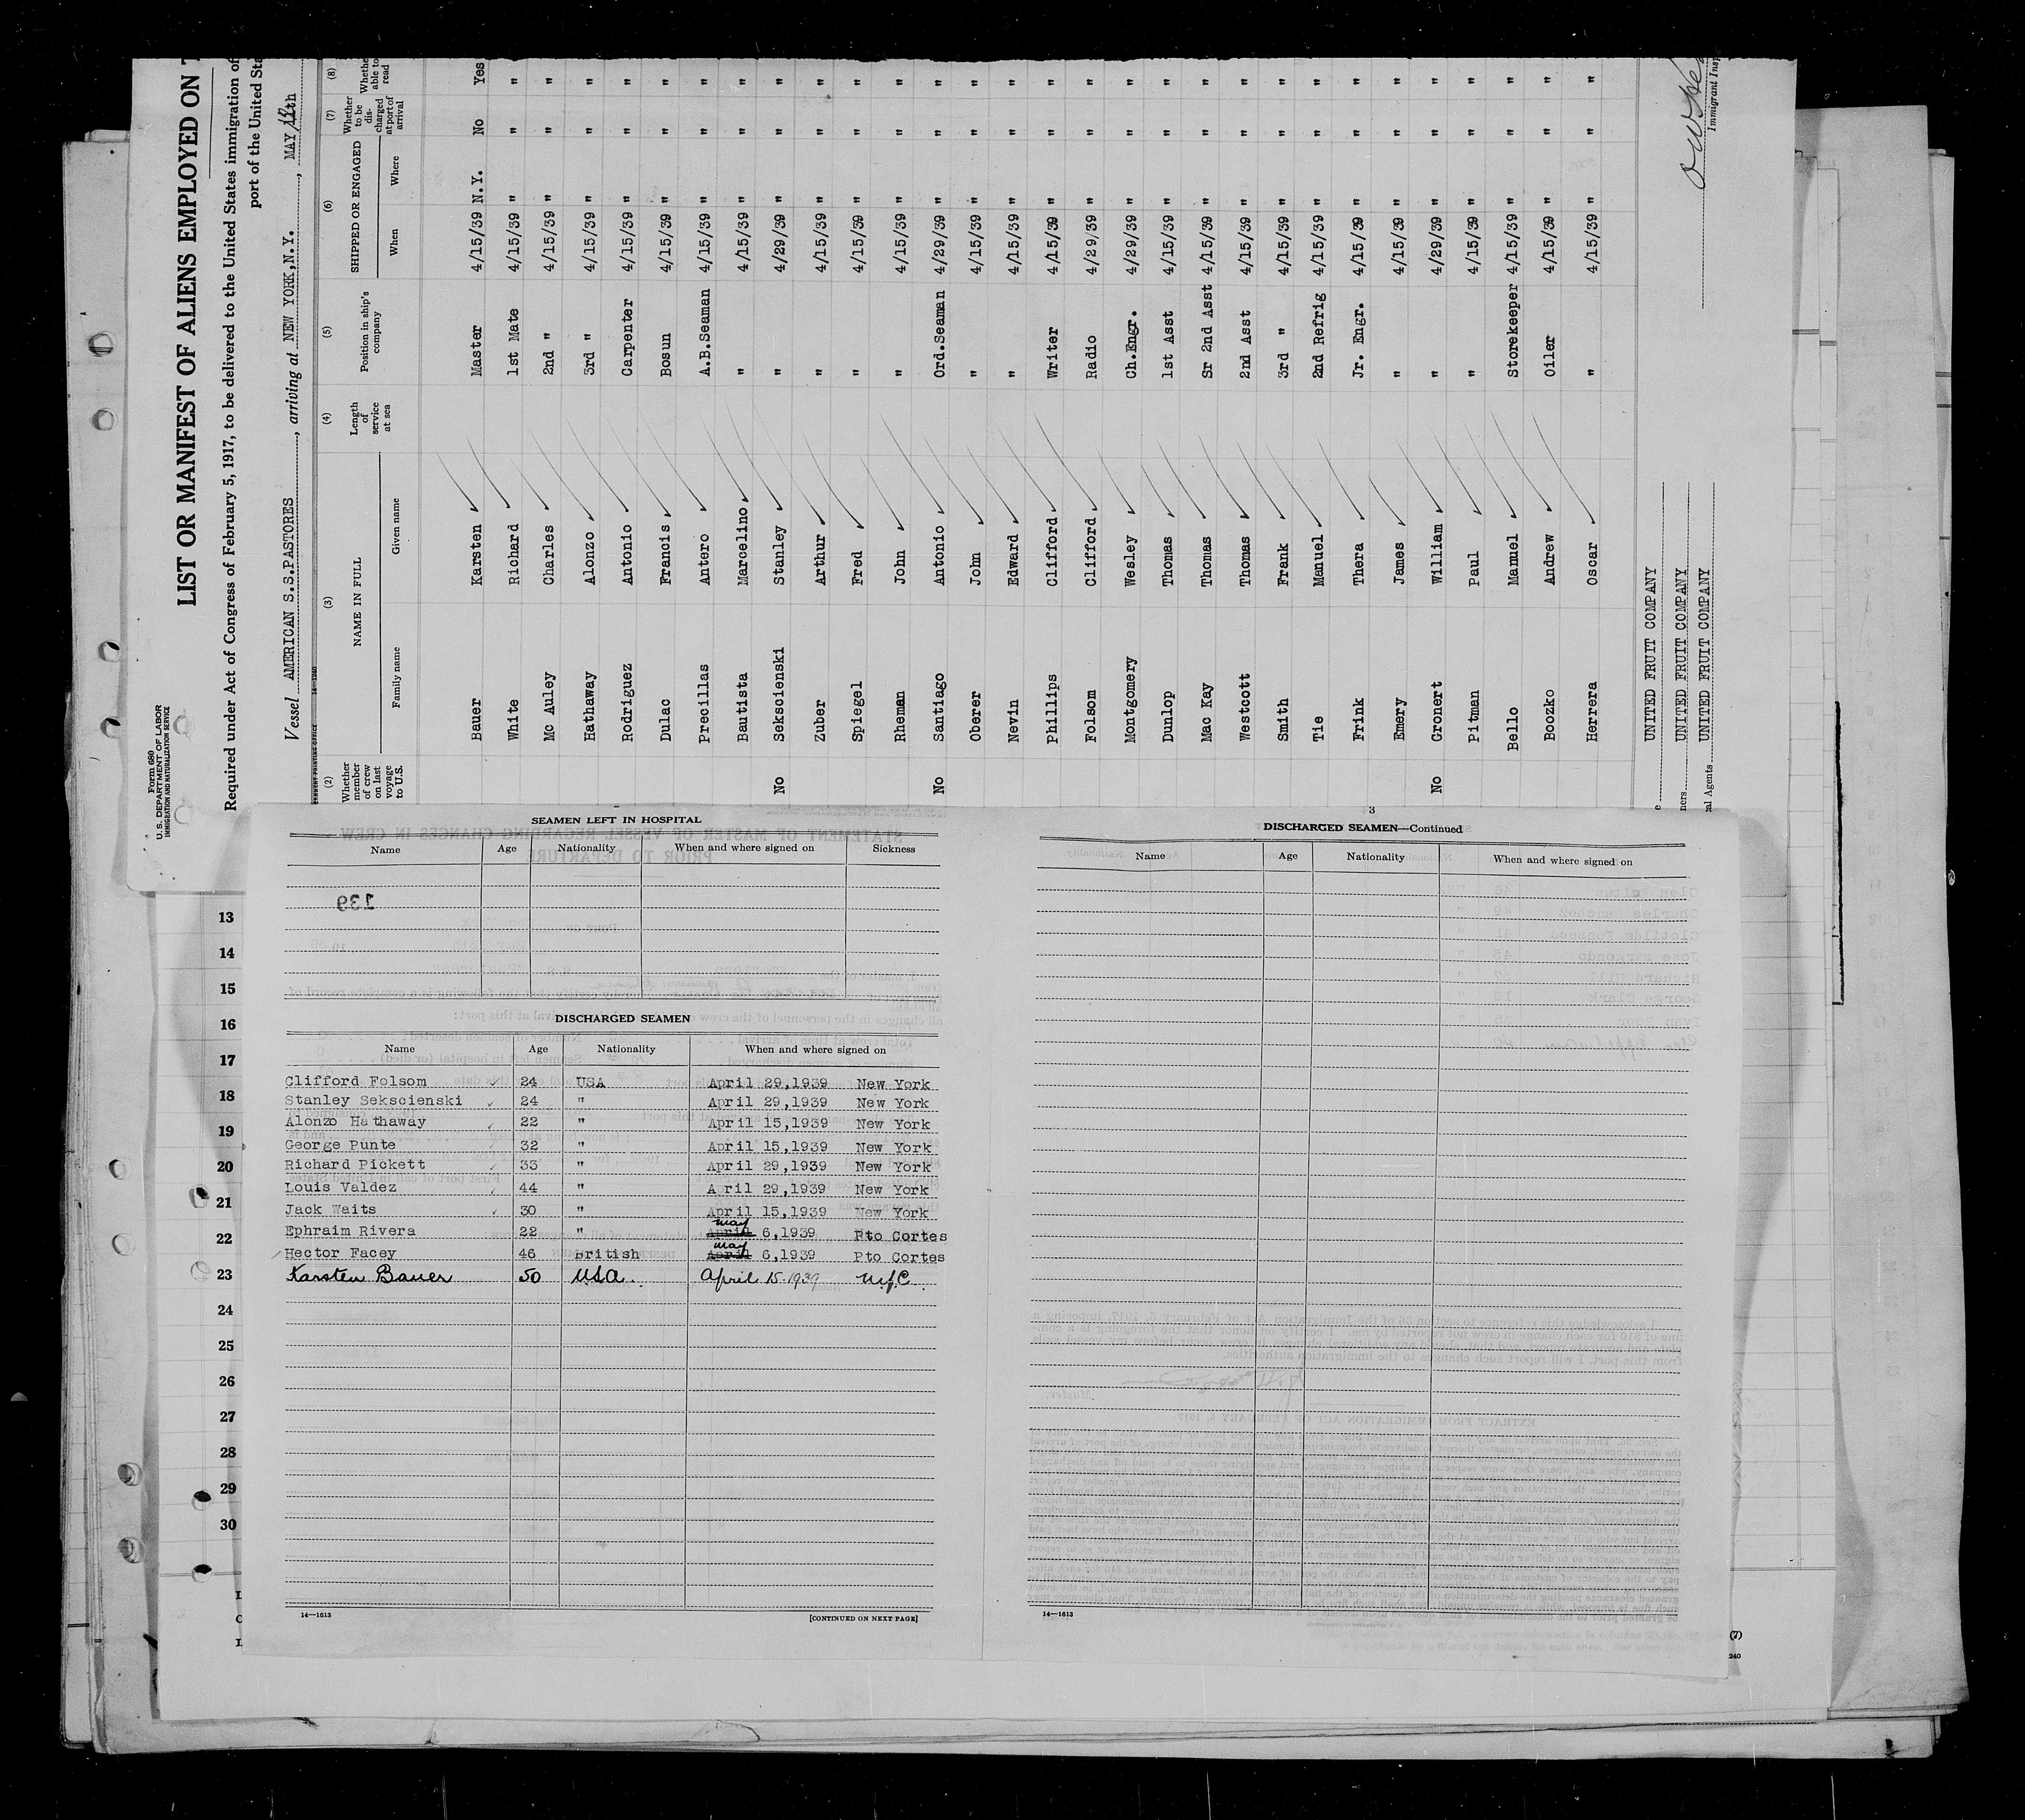 Form 680
U. S. DEPARTMENT OF LABOR
IMMIGRATION AND NATURALIZATION SERVICE
LIST OR MANIFEST OF ALIENS EMPLOYED ON
Required under Act of Congress of February 5, 1917, to be delivered to the United States immigration of
port of the United Sta
Vessel AMERICAN S.S.PASTORES, arriving at NEW YORK,N.Y., MAY
(2) (3) (4) (5) (6) (7) (8)
Whether member of crew on last voyage to U.S. NAME IN FULL Family name Given name Length of service at sea Position in ship's company SHIPPED OR ENGAGED When Where Whether to be discharged at port of arrival Whether able to read
Bauer Karsten Master 4/15/39 N.Y. No Yes
White Richard 1st Mate 4/15/39 " " "
Mc Auley Charles 2nd " 4/15/39 " " "
Hathaway Alonzo 3rd " 4/15/39 " " "
Rodriguez Antonio Carpenter 4/15/39 " " "
Dulac Francis Bosun 4/15/39 " " "
Precillas Antero A.B.Seaman 4/15/39 " " "
Bautista Marcelino " 4/15/39 " " "
No Sekscienski Stanley " 4/29/39 " " "
Zuber Arthur " 4/15/39 " " "
Spiegel Fred " 4/15/39 " " "
Rheman John " 4/15/39 " " "
No Santiago Antonio Ord.Seaman 4/29/39 " " "
Oberer John " 4/15/39 " " "
Nevin Edward " 4/15/39 " " "
Phillips Clifford Writer 4/15/39 " " "
Folsom Clifford Radio 4/29/39 " " "
Montgomery Wesley Ch.Engr. 4/29/39 " " "
Dunlop Thomas 1st Asst 4/15/39 " " "
Mac Kay Thomas Sr 2nd Asst 4/15/39 " " "
Westcott Thomas 2nd Asst 4/15/39 " " "
Smith Frank 3rd " 4/15/39 " " "
Tie Manuel 2nd Refrig 4/15/39 " " "
Frink Thera Jr. Engr. 4/15/39 " " "
Emery James " 4/15/39 " " "
No Gronert William " 4/29/39 " " "
Pitman Paul " 4/15/39 " " "
Bello Manuel Storekeeper 4/15/39 " " "
Boozko Andrew Oiler 4/15/39 " " "
Herrera Oscar " 4/15/39 " " "
UNITED FRUIT COMPANY
UNITED FRUIT COMPANY
UNITED FRUIT COMPANY
Immigrant Insp
13
14
15
16
17
18
19
20
21
22
23
24
25
26
27
28
29
30
SEAMEN LEFT IN HOSPITAL
Name Age Nationality When and where signed on Sickness
139
DISCHARGED SEAMEN
Name Age Nationality When and where signed on
Clifford Folsom 24 USA April 29,1939 New York
Stanley Sekscienski 24 " April 29,1939 New York
Alonzo Hathaway 22 " April 15,1939 New York
George Punte 32 " April 15,1939 New York
Richard Pickett 33 " April 29,1939 New York
Louis Valdez 44 " A ril 29,1939 New York
Jack Waits 30 " April 15,1939 New York
Ephraim Rivera 22 " April may 6,1939 Pto Cortes
Hector Facey 46 British April may 6,1939 Pto Cortes
Karsten Bauer 50 USA. April 15-1939 nyc
14—1613 [CONTINUED ON NEXT PAGE]
3
DISCHARGED SEAMEN—Continued
Name Age Nationality When and where signed on
14—1613
(7)
240